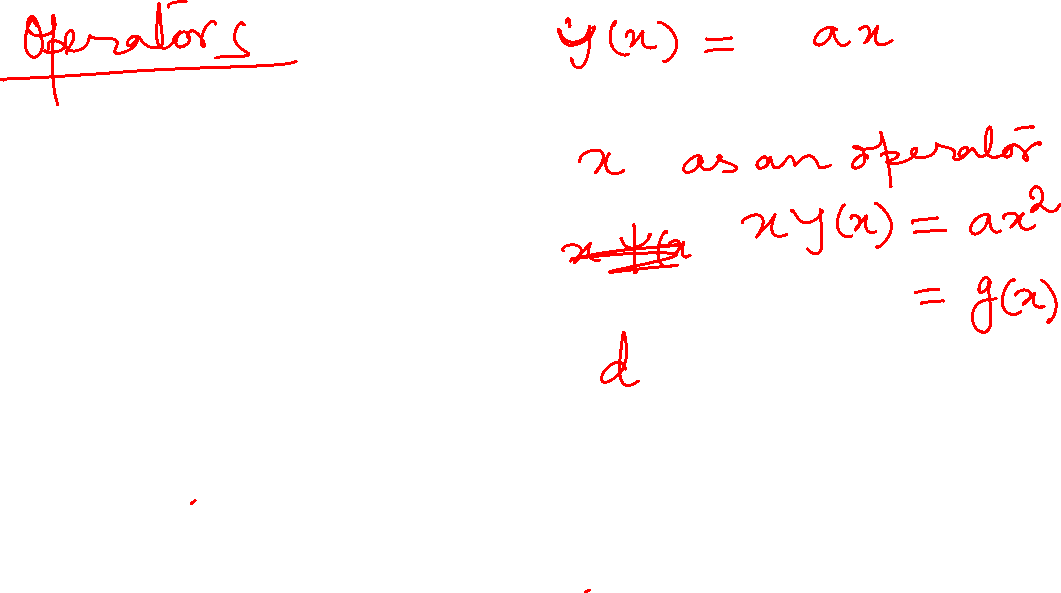 Operators
y(x) = ax
x as an operator
x y(x) = ax²
= g(x)
d